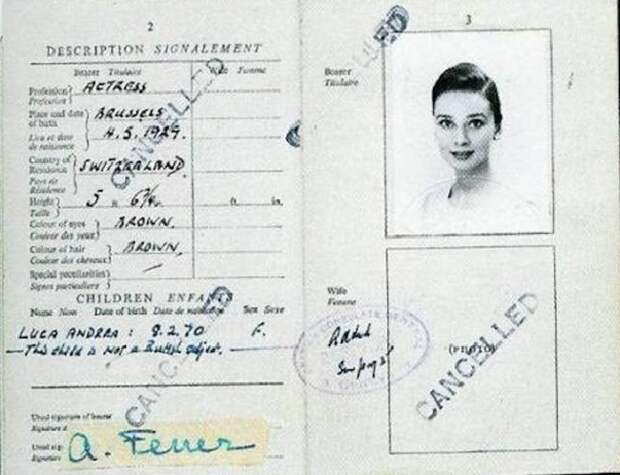 2
DESCRIPTION SIGNALEMENT
Bearer Titulaire
Wife Femme
Profession
Profession
ACTRESS
Place and date
of birth
BRUSSELS
Lieu et date
de naissance
4.5.1929.
Country of
Residence
SWITZERLAND
Pays de
Résidence
Height
Taille
5
ft.
in.
Colour of eyes
Couleur des yeux
BROWN.
Colour of hair
Couleur des cheveux
BROWN.
Special peculiarities
Signes particuliers
CHILDREN ENFANTS
Name Nom
Date of birth Date de naissance
Sex Sexe
LUCA ANDREA : 8.2.70
This child is not a British subject.
Usual signature of bearer
Signature
CANCELLED
CANCELLED
3
Bearer
Titulaire
Wife
Femme
(PHOTO)
CANCELLED